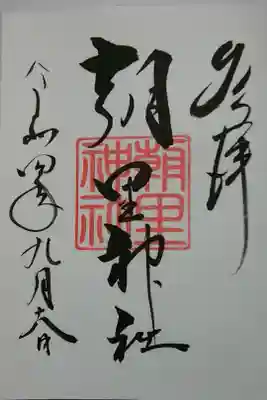 奉拝
朝里神社
朝里
神社
令和四年九月六日